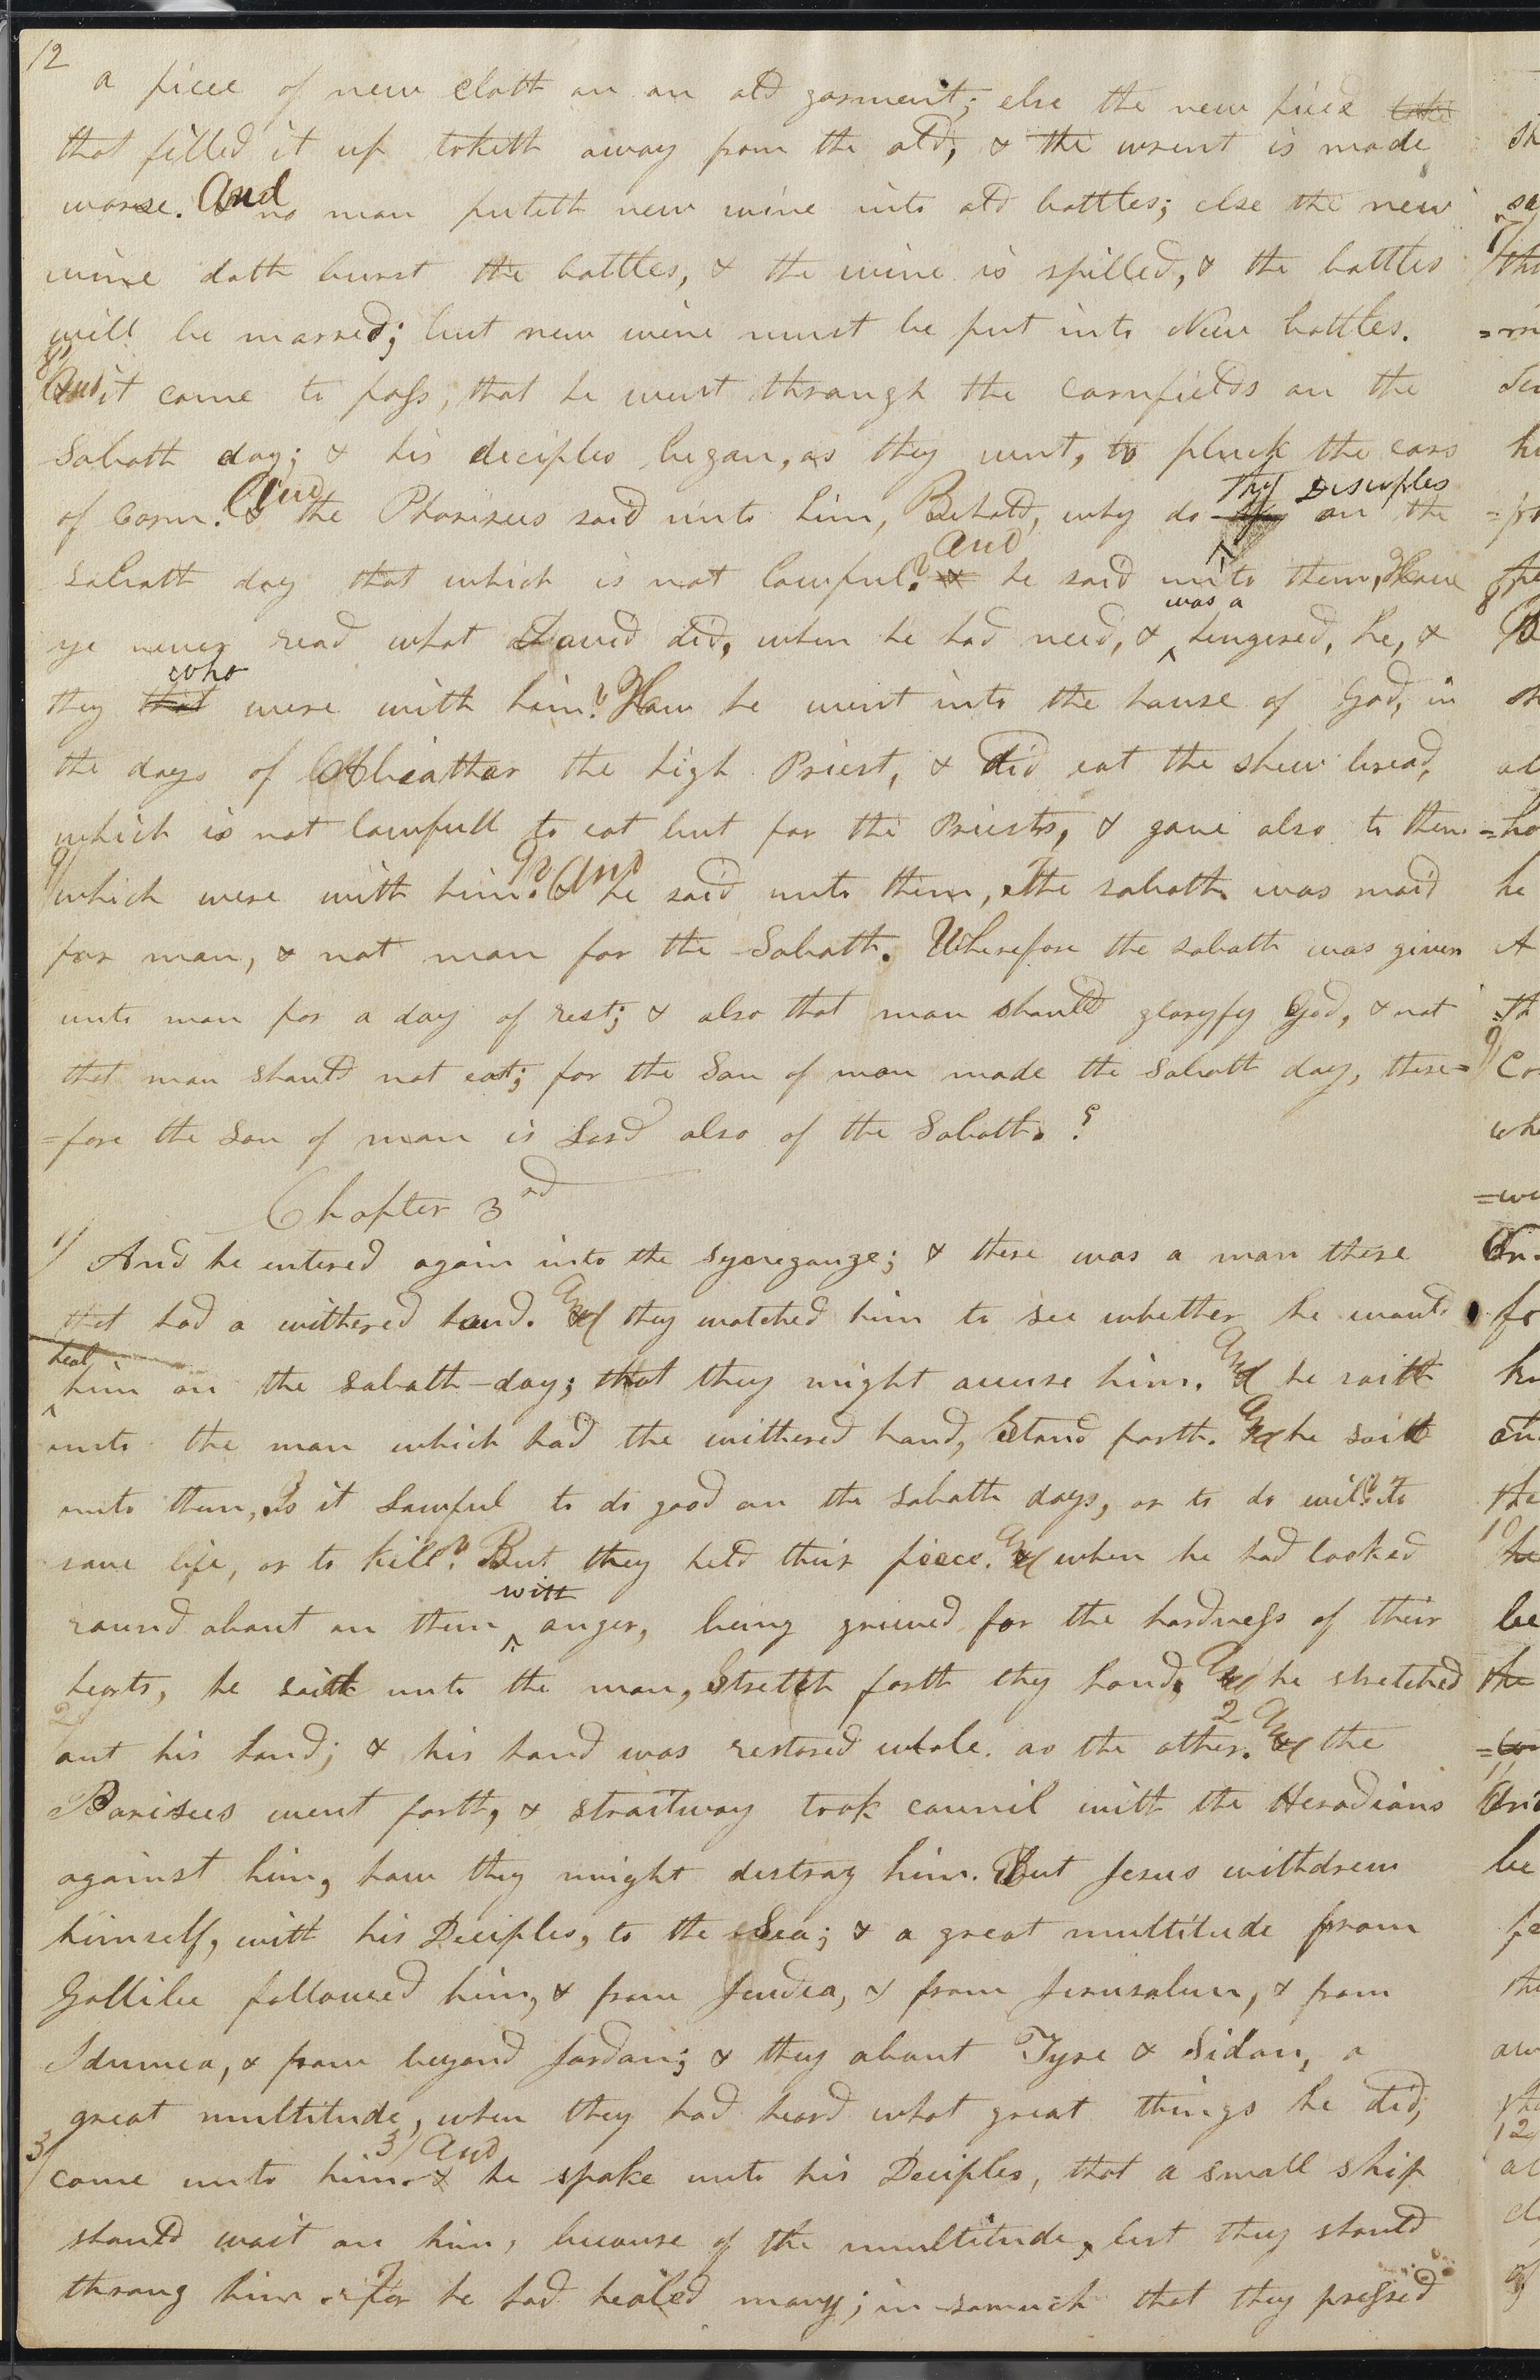 12
a piece of new cloth on an old garment; else the new piece
that filled it up taketh away from the old, & the wrent is made
worse. And no man puteth new wine into old bottles; else the new
wine doth burst the bottles, & the wine is spilled, & the bottles
will be marred; but new wine must be put into New bottles.
8/
And it came to pass, that he went through the cornfields on the
Sabath day; & his deciples began, as they went, to pluck the ears
thy Disciples
of corn. And the Pharisees said unto him, Behold, why do on the
and
sabath day that which is not lawful? & he said unto them, Have
was a
ye never read what David did, when he had need, & ^ hungered, he, &
who
they that were with him? How he went into the house of God, in
the days of Abiathar the high Priest, & did eat the shew bread,
which is not lawfull to eat but for the Priests, & gave also to them
9/ 9/ And
which were with him? & he said unto them, The sabath was maid
for man, & not man for the Sabath. Wherefore the sabath was given
unto man for a day of rest; & also that man should gloryfy God, & not
that man should not eat; for the Son of man made the Sabath day, there=
=fore the Son of man is Lord also of the Sabath. ?
Chapter 3rd
1/ And he entered again into the synegauge; & there was a man there
that had a withered hand. And they watched him to see whether he would
heal
^ him on the sabath-day; that they might accuse him. And he saith
unto the man which had the withered hand, Stand forth. And he saith
unto them, Is it Lawful to do good on the sabath days, or to do evil? To
save life, or to kill? But they held their piece. And when he had looked
with
round about on them ^ anger, being grieved for the hardness of their
hearts, he saith unto the man, Stretch forth thy hand, And he stretched
2/ 2 And
out his hand; & his hand was restored whole. as the other. & the
Parisees went forth, & straitway took council with the Herodians
against him, how they might destroy him. But Jesus withdrew
himself, with his Deciples, to the Sea; & a great multitude from
Gallilee followed him, & from Judea, & from Jerusalum, & from
Idumea, & from beyond Jordan; & they about Tyre & Sidon, a
great multitude, when they had heard what great things he did;
3/ 3/ And
came unto him. & he spake unto his Deciples, that a small ship
should wait on him, because of the multitude, lest they should
throng him. For he had healed many; in-somuch that they pressed